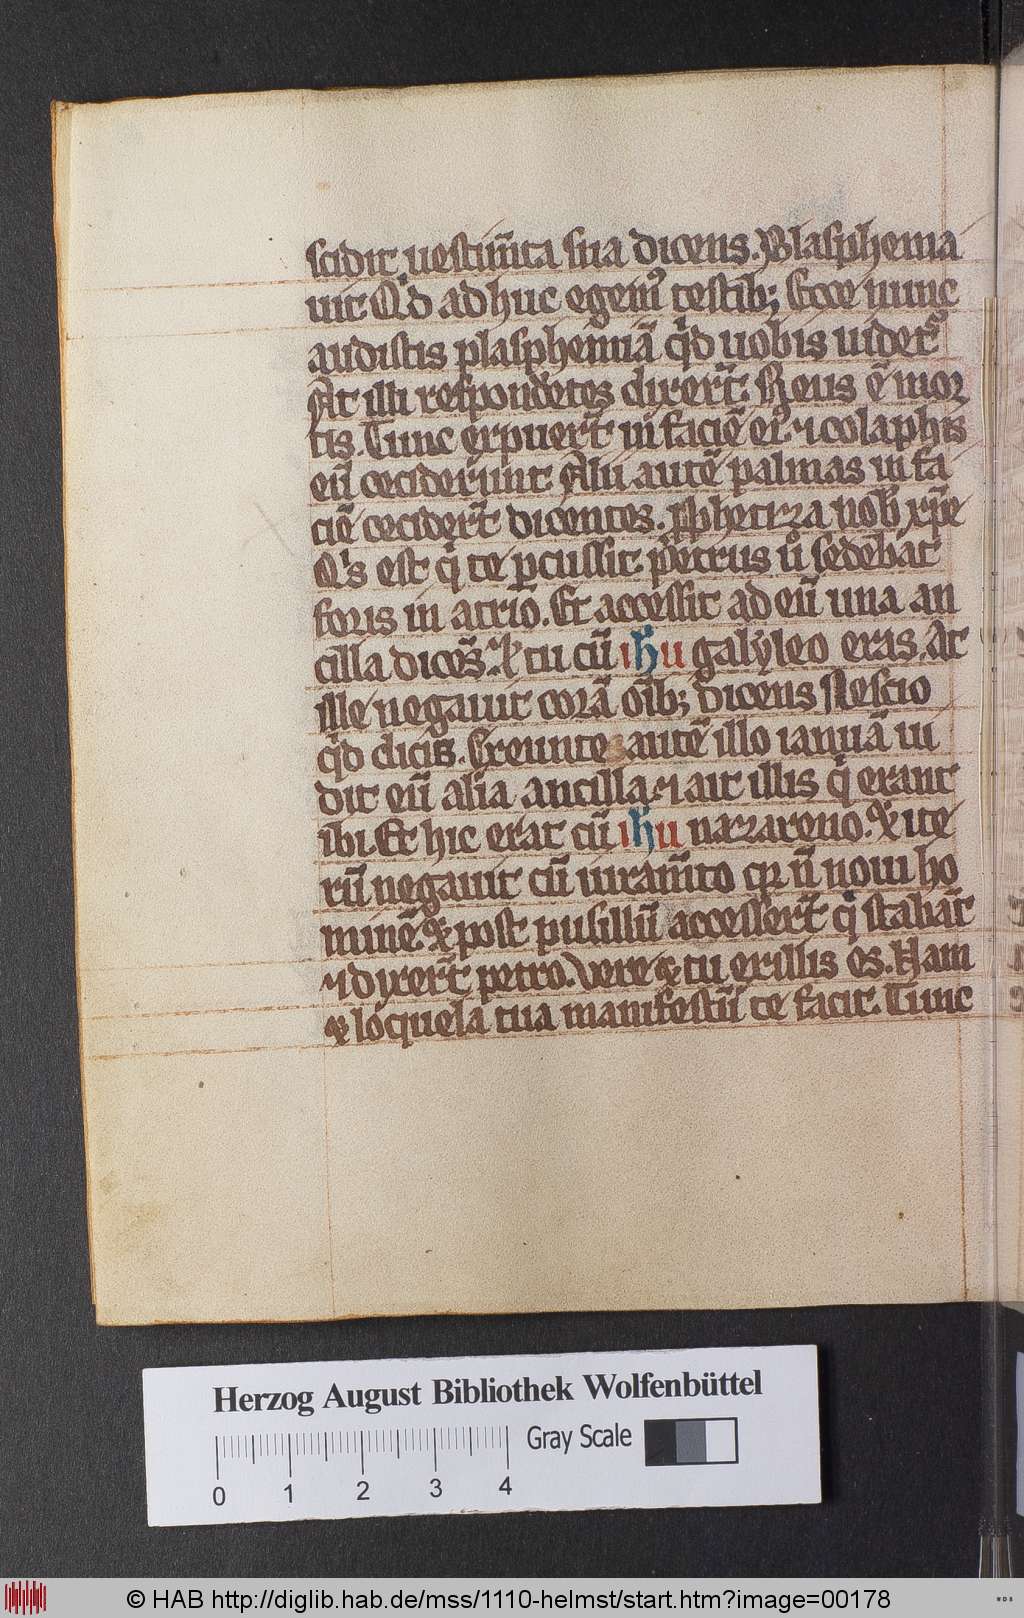 scidit uestim̄ta sua dicens. Blasphema
uit Qͥd adhuc egem᷒ testib; Ecce nunc
audistis plasphemiā qͥd uobis uidet᷑
At illi respondētes dixer̄t. Reus ē mor
tis. Tunc expuer̄t in faciē eiꝰ ⁊ colaphis
eū ceciderunt Alii autē palmas in fa
ciē cecider̄t dicentes. ꝓphetiza nob̄ xp̄e
Qͥs est qͥ te ꝑcussit petrus ů sedebat
foris in atrio. Et accessit ad eū una an
cilla dicēs. Et tu cū ihu galyleo eras. At
ille negauit corā oīb; dicens Nescio
qͥd dicis. Exeunte autē illo ianuā ui
dit eū alia ancilla ⁊ ait illis qͥ erant
ibi. Et hic erat cū ihu nazareno. Et ite
rū negauit cū iuram̄to qꝛ n̄ noui ho
minē. Et post pusillū accesser̄t qͥ stabāt
⁊ dixer̄t petro. Vere et tu ex illis es. Nam
et loquela tua manifestū te facit. Tunc
Herzog August Bibliothek Wolfenbüttel
Gray Scale
0 1 2 3 4
© HAB http://diglib.hab.de/mss/1110-helmst/start.htm?image=00178